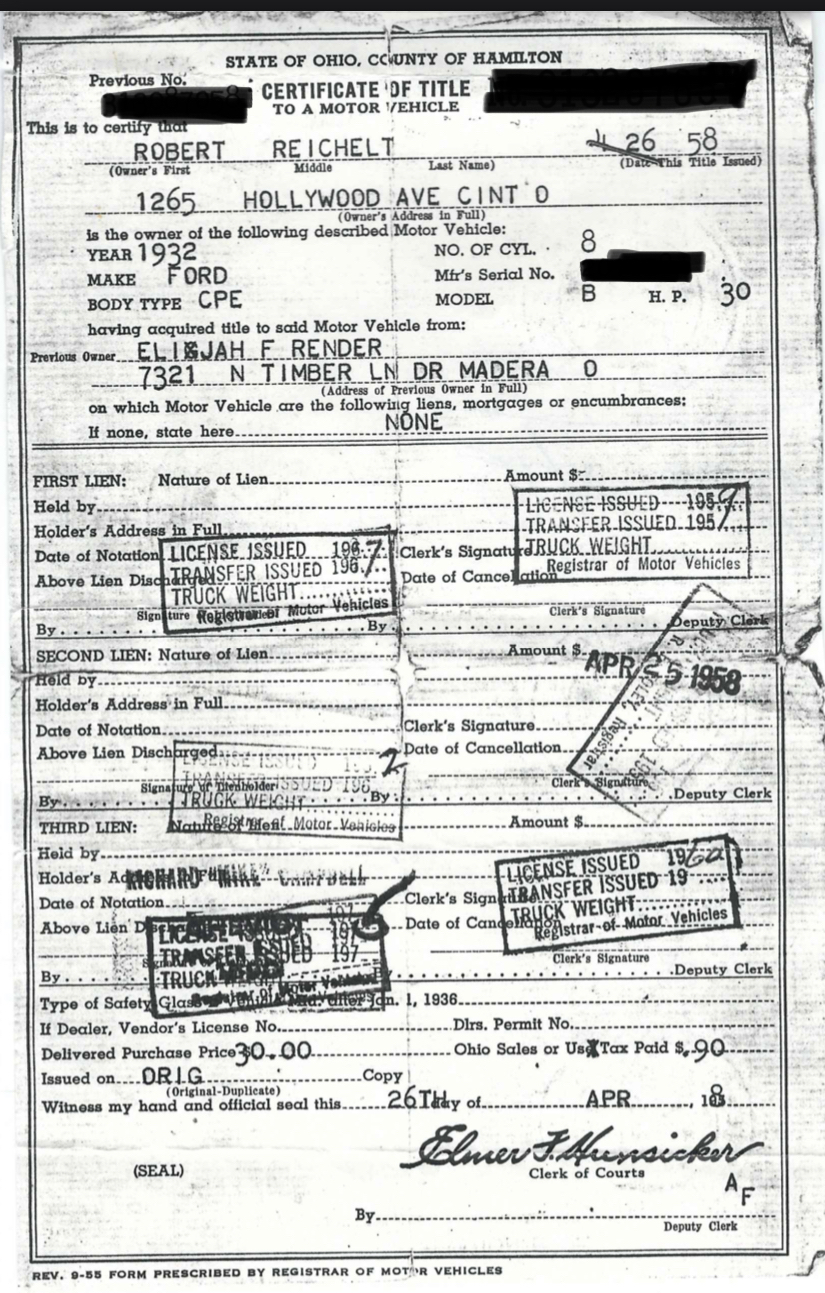 STATE OF OHIO, COUNTY OF HAMILTON
Previous No.
CERTIFICATE OF TITLE
TO A MOTOR VEHICLE
This is to certify that
ROBERT REICHELT 4 26 58
(Owner's First Middle Last Name) (Date This Title Issued)
1265 HOLLYWOOD AVE CINT O
(Owner's Address in Full)
is the owner of the following described Motor Vehicle:
YEAR 1932 NO. OF CYL. 8
MAKE FORD Mfr's Serial No.
BODY TYPE CPE MODEL B H. P. 30
having acquired title to said Motor Vehicle from:
Previous Owner F RENDER
7321 N TIMBER LN DR MADERA O
(Address of Previous Owner in Full)
on which Motor Vehicle are the following liens, mortgages or encumbrances:
If none, state here NONE
FIRST LIEN: Nature of Lien Amount $
Held by
Holder's Address in Full
Date of Notation Clerk's Signature
Above Lien Discharged Date of Cancellation
LICENSE ISSUED 1959
TRANSFER ISSUED 195
TRUCK WEIGHT
Registrar of Motor Vehicles
LICENSE ISSUED 196
TRANSFER ISSUED 196
TRUCK WEIGHT
Registrar of Motor Vehicles
Signature Clerk's Signature
By By Deputy Clerk
SECOND LIEN: Nature of Lien Amount $
APR 25 1958
Held by
Holder's Address in Full
Date of Notation Clerk's Signature
Above Lien Discharged Date of Cancellation
LICENSE ISSUED 196 2
TRANSFER ISSUED 196
TRUCK WEIGHT
Registrar of Motor Vehicles
Signature of Lienholder Clerk's Signature
By By Deputy Clerk
THIRD LIEN: Nature of Lien Amount $
Held by
Holder's Address in Full
RICHARD "MIKE" CAMPBELL
Date of Notation Clerk's Signature
Above Lien Date of Cancellation
LICENSE ISSUED 19
TRANSFER ISSUED 19
TRUCK WEIGHT
Registrar of Motor Vehicles
LICENSE ISSUED 197
TRANSFER ISSUED 197
TRUCK
Motor Vehicles
Clerk's Signature
By Deputy Clerk
Type of Safety Glass Jan. 1, 1936
If Dealer, Vendor's License No. Dlrs. Permit No.
Delivered Purchase Price 30.00 Ohio Sales or Use Tax Paid $ .90
Issued on ORIG Copy
(Original-Duplicate)
Witness my hand and official seal this 26TH day of APR , 195 8
Elmer F. Hunsicker
(SEAL) Clerk of Courts
A F
By
Deputy Clerk
REV. 9-55 FORM PRESCRIBED BY REGISTRAR OF MOTOR VEHICLES